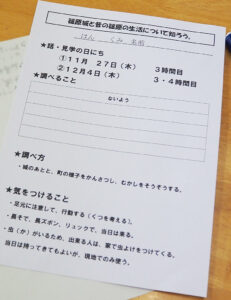 篠原城と昔の篠原の生活について知ろう。
けん くみ 名前
★話・見学の日にち
①11月 27日（木） 3時間目
②12月4日（木） 3・4時間目
★調べること
ないよう
★調べ方
・城のあとと、町の様子をかんさつし、むかしをそうぞうする。
★気をつけること
・足元に注意して、行動する（くつを考える）。
・長そで、長ズボン、リュックで、当日は来る。
・虫（か）がいるため、出来る人は、家で虫よけをつけてくる。
当日は持ってきてもよいが、現地でのみ使う。